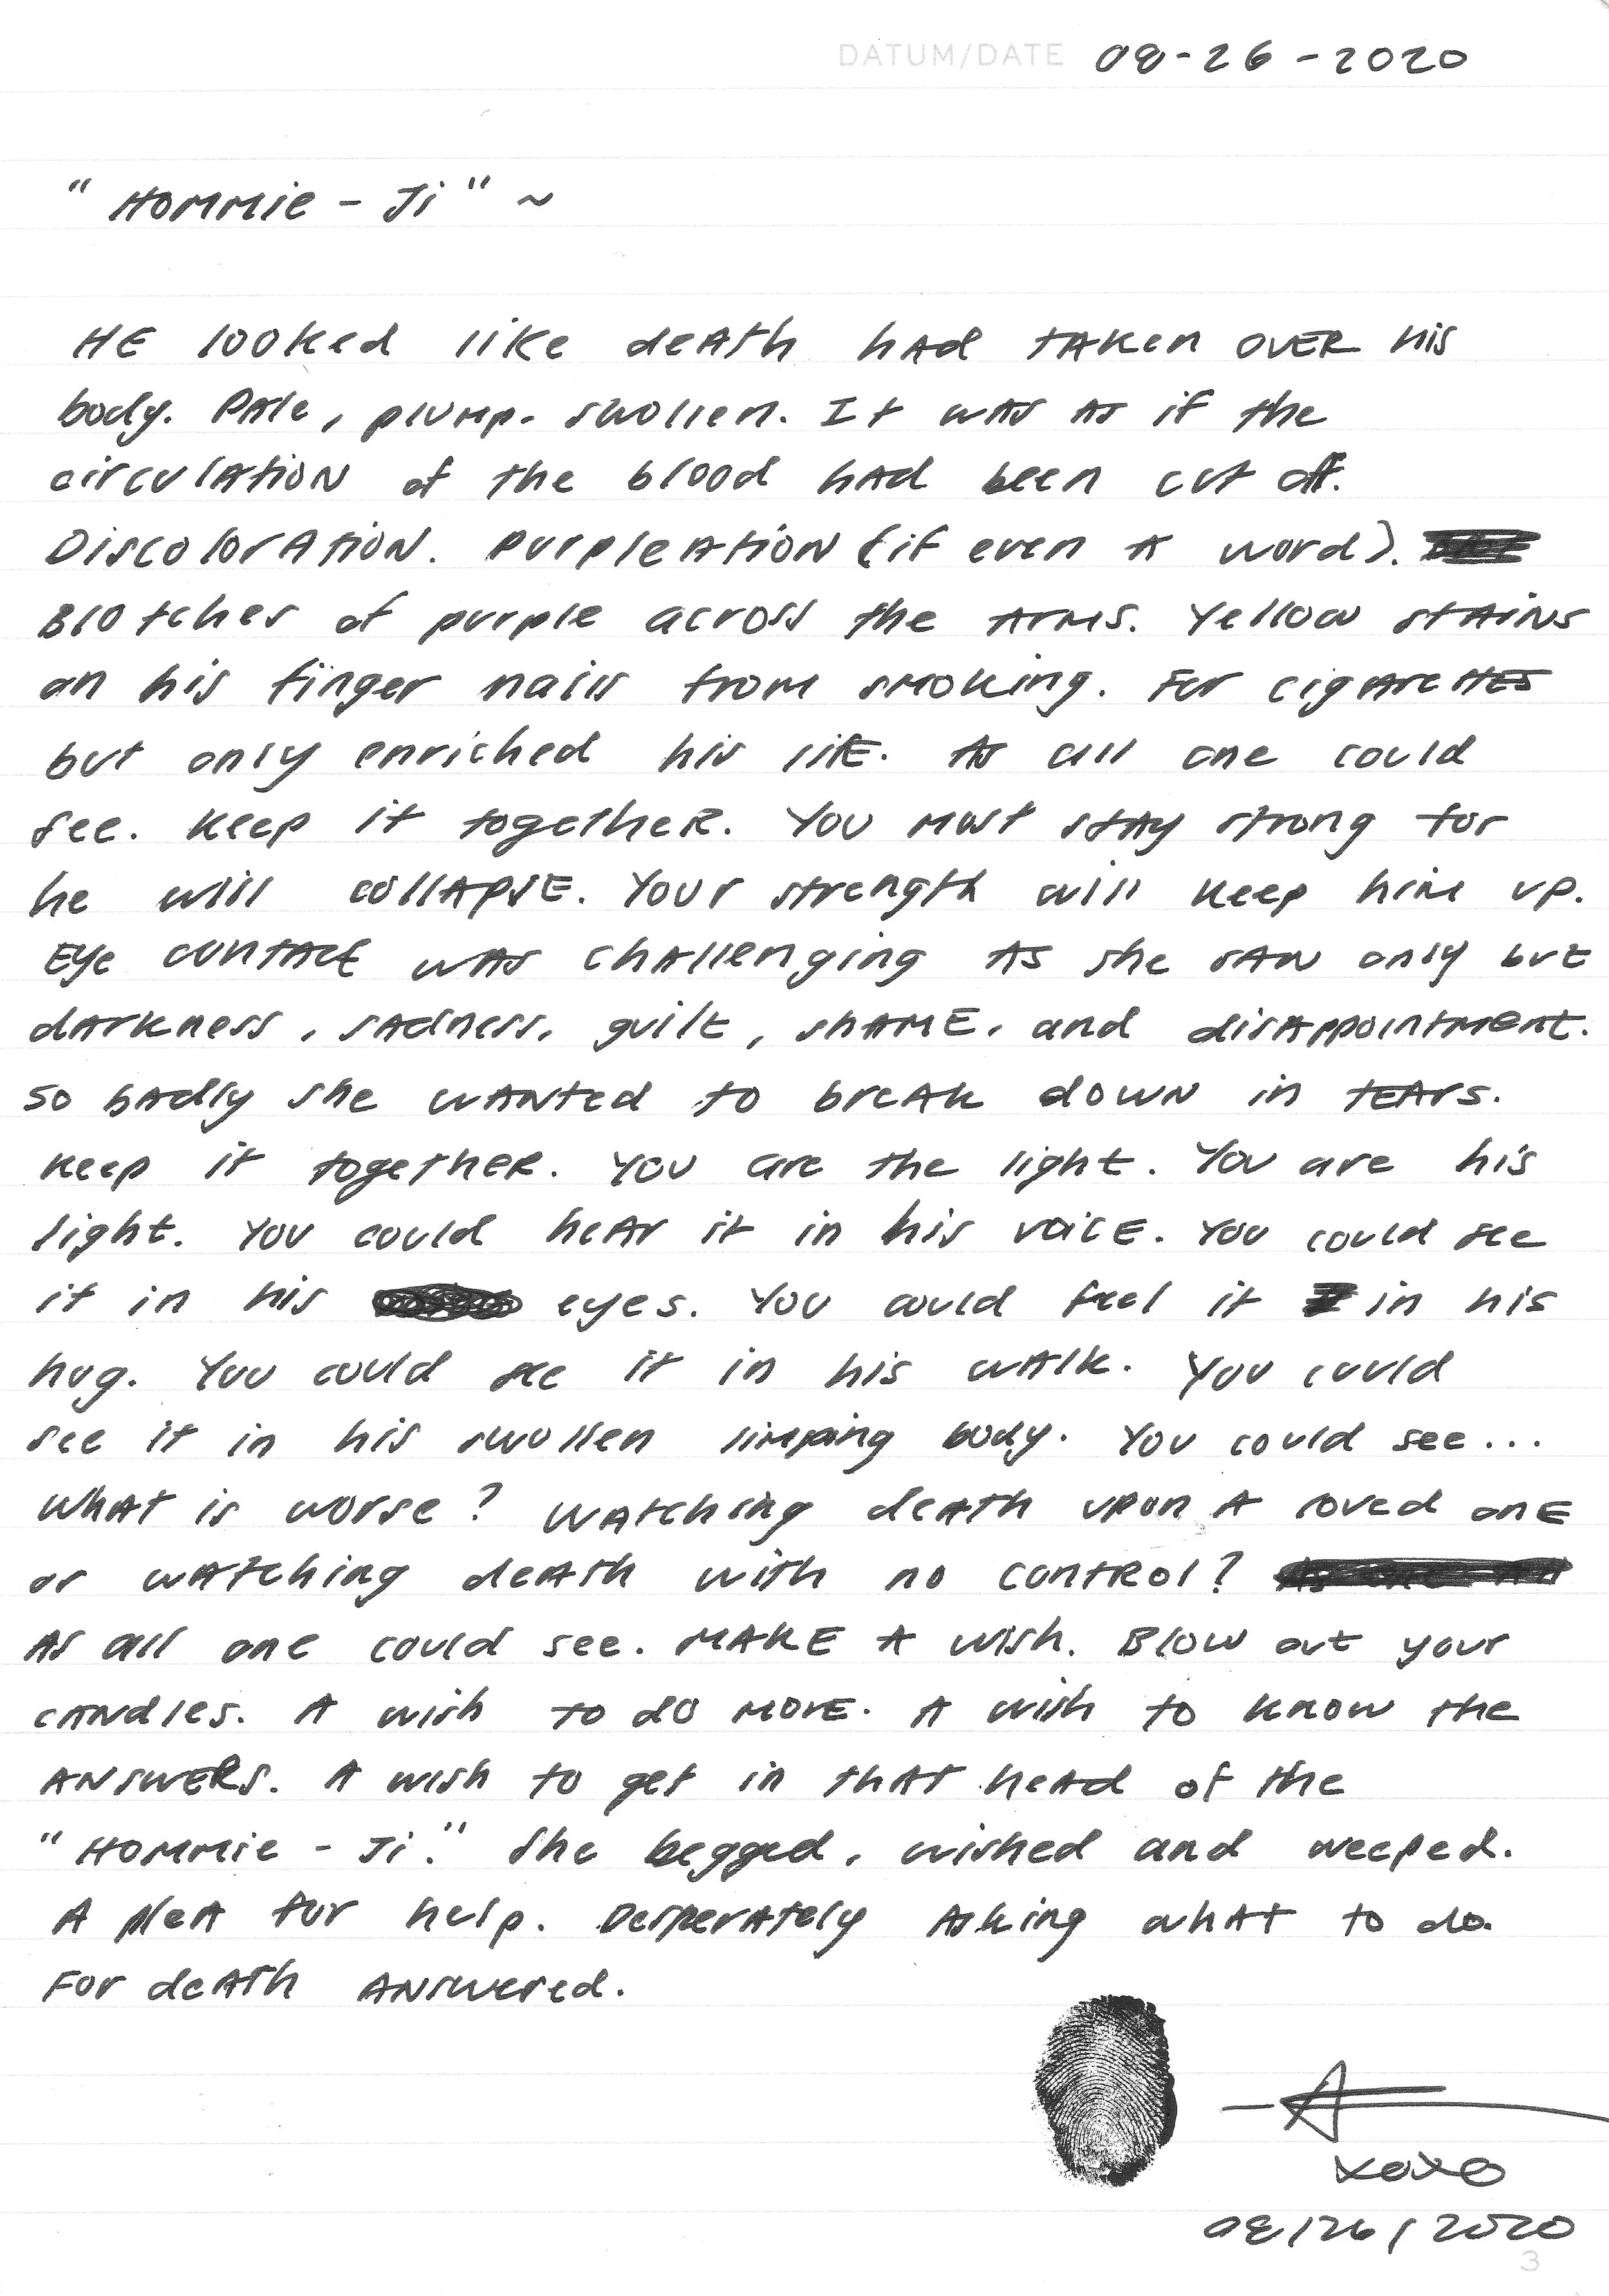 DATUM/DATE 08-26-2020
"HOMMIE - Ji" ~
HE looked like deATh hAd TAKEn OVER his
body. PAle, plump. swollen. It wAs As if the
circulAtioN of the blood hAd been cut off.
DiscolorAtioN. PurpleAtioN (if even A word).
Blotches of purple across the Arms. Yellow stAiNs
on his finger nails from smoking. For cigArettes
but only enriched his lifE. As all one could
see. Keep it togetheR. You must stAy strong for
he will collApsE. Your strength will keep him up.
Eye contAct wAs chAllenging As she sAw only but
dArkness, sAdness, guilt, shAME, and disAppointment.
So bAdly she wANted to breAk down in teArs.
Keep it togetheR. You are the light. You are his
light. You could heAr it in his voicE. You could see
it in his eyes. You could feel it in his
hug. You could see it in his wAlk. You could
see it in his swollen limping body. You could see...
WhAt is worse? WAtching deATh upon A loved onE
or wAtching deATh with no contROl?
As all one could see. MAKE A wish. Blow out your
cANdles. A wish to do MORE. A wish to know the
ANswERs. A wish to get in thAT heAd of the
"HOMMie - Ji." She begged, wished and weeped.
A pleA for help. DesperAtely Asking whAt to do.
For deATh ANswered.
A
xoxo
08/26/2020
3